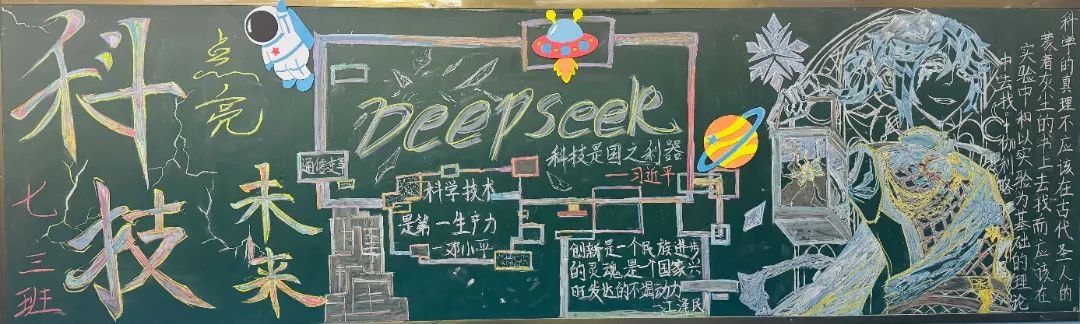 科技
点亮
未来
七三班
Deepseek
科技是国之利器
—习近平
通信变革
科学技术
是第一生产力
—邓小平
创新是一个民族进步
的灵魂是一个国家兴
旺发达的不竭动力
—江泽民
科学的真理不应该在古代圣人的
蒙着灰土的书上去找而应该在
实验中和以实验为基础的理论
中去找